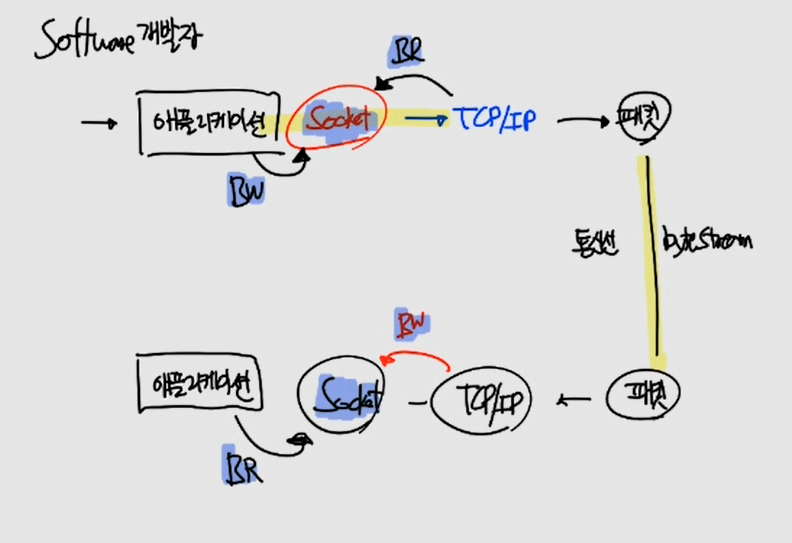 Software 개발자
BR
애플리케이션 Socket TCP/IP 패킷
BW
통신선 byte stream
BW
애플리케이션 Socket TCP/IP 패킷
BR